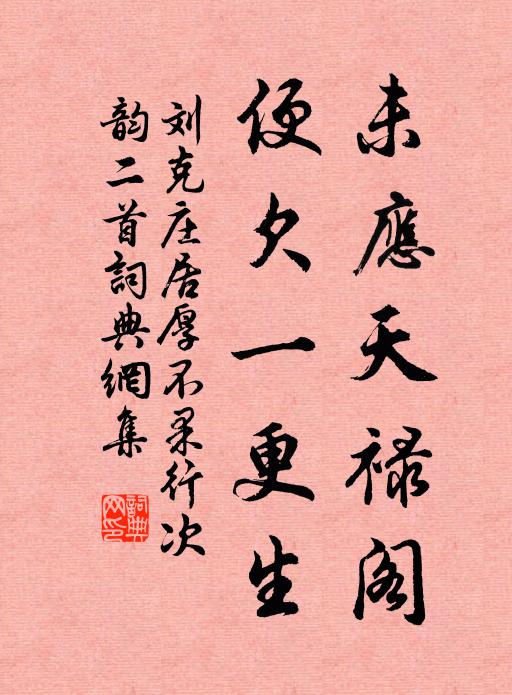 未應天禄阁
便欠一更生
刘克庄居厚不果行次
韵二首詞典網集
詞典网印